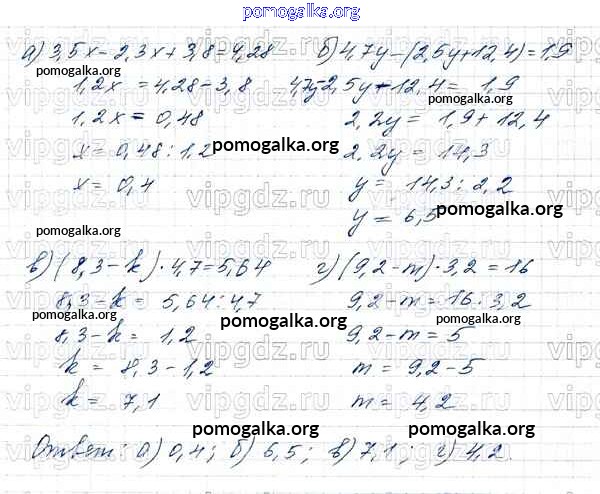 pomogalka.org
а) 3,5x-2,3x+3,8=4,28
1,2x = 4,28-3,8
1,2x = 0,48
x = 0,48:1,2
x = 0,4
б) 4,7y-(2,5y+12,4)=1,9
4,7y-2,5y-12,4= 1,9
2,2y = 1,9+12,4
2,2y = 14,3
y = 14,3:2,2
y = 6,5
в) (8,3-k)·4,7=5,64
8,3-k = 5,64:4,7
8,3-k = 1,2
k = 8,3-1,2
k = 7,1
г) (9,2-m)·3,2=16
9,2-m=16:3,2
9,2-m=5
m = 9,2-5
m = 4,2
Ответ: а) 0,4; б) 6,5; в) 7,1; г) 4,2.
pomogalka.org
pomogalka.org
pomogalka.org
pomogalka.org
pomogalka.org
pomogalka.org
pomogalka.org
pomogalka.org
pomogalka.org
pomogalka.org
pomogalka.org
pomogalka.org
vipgdz.ru